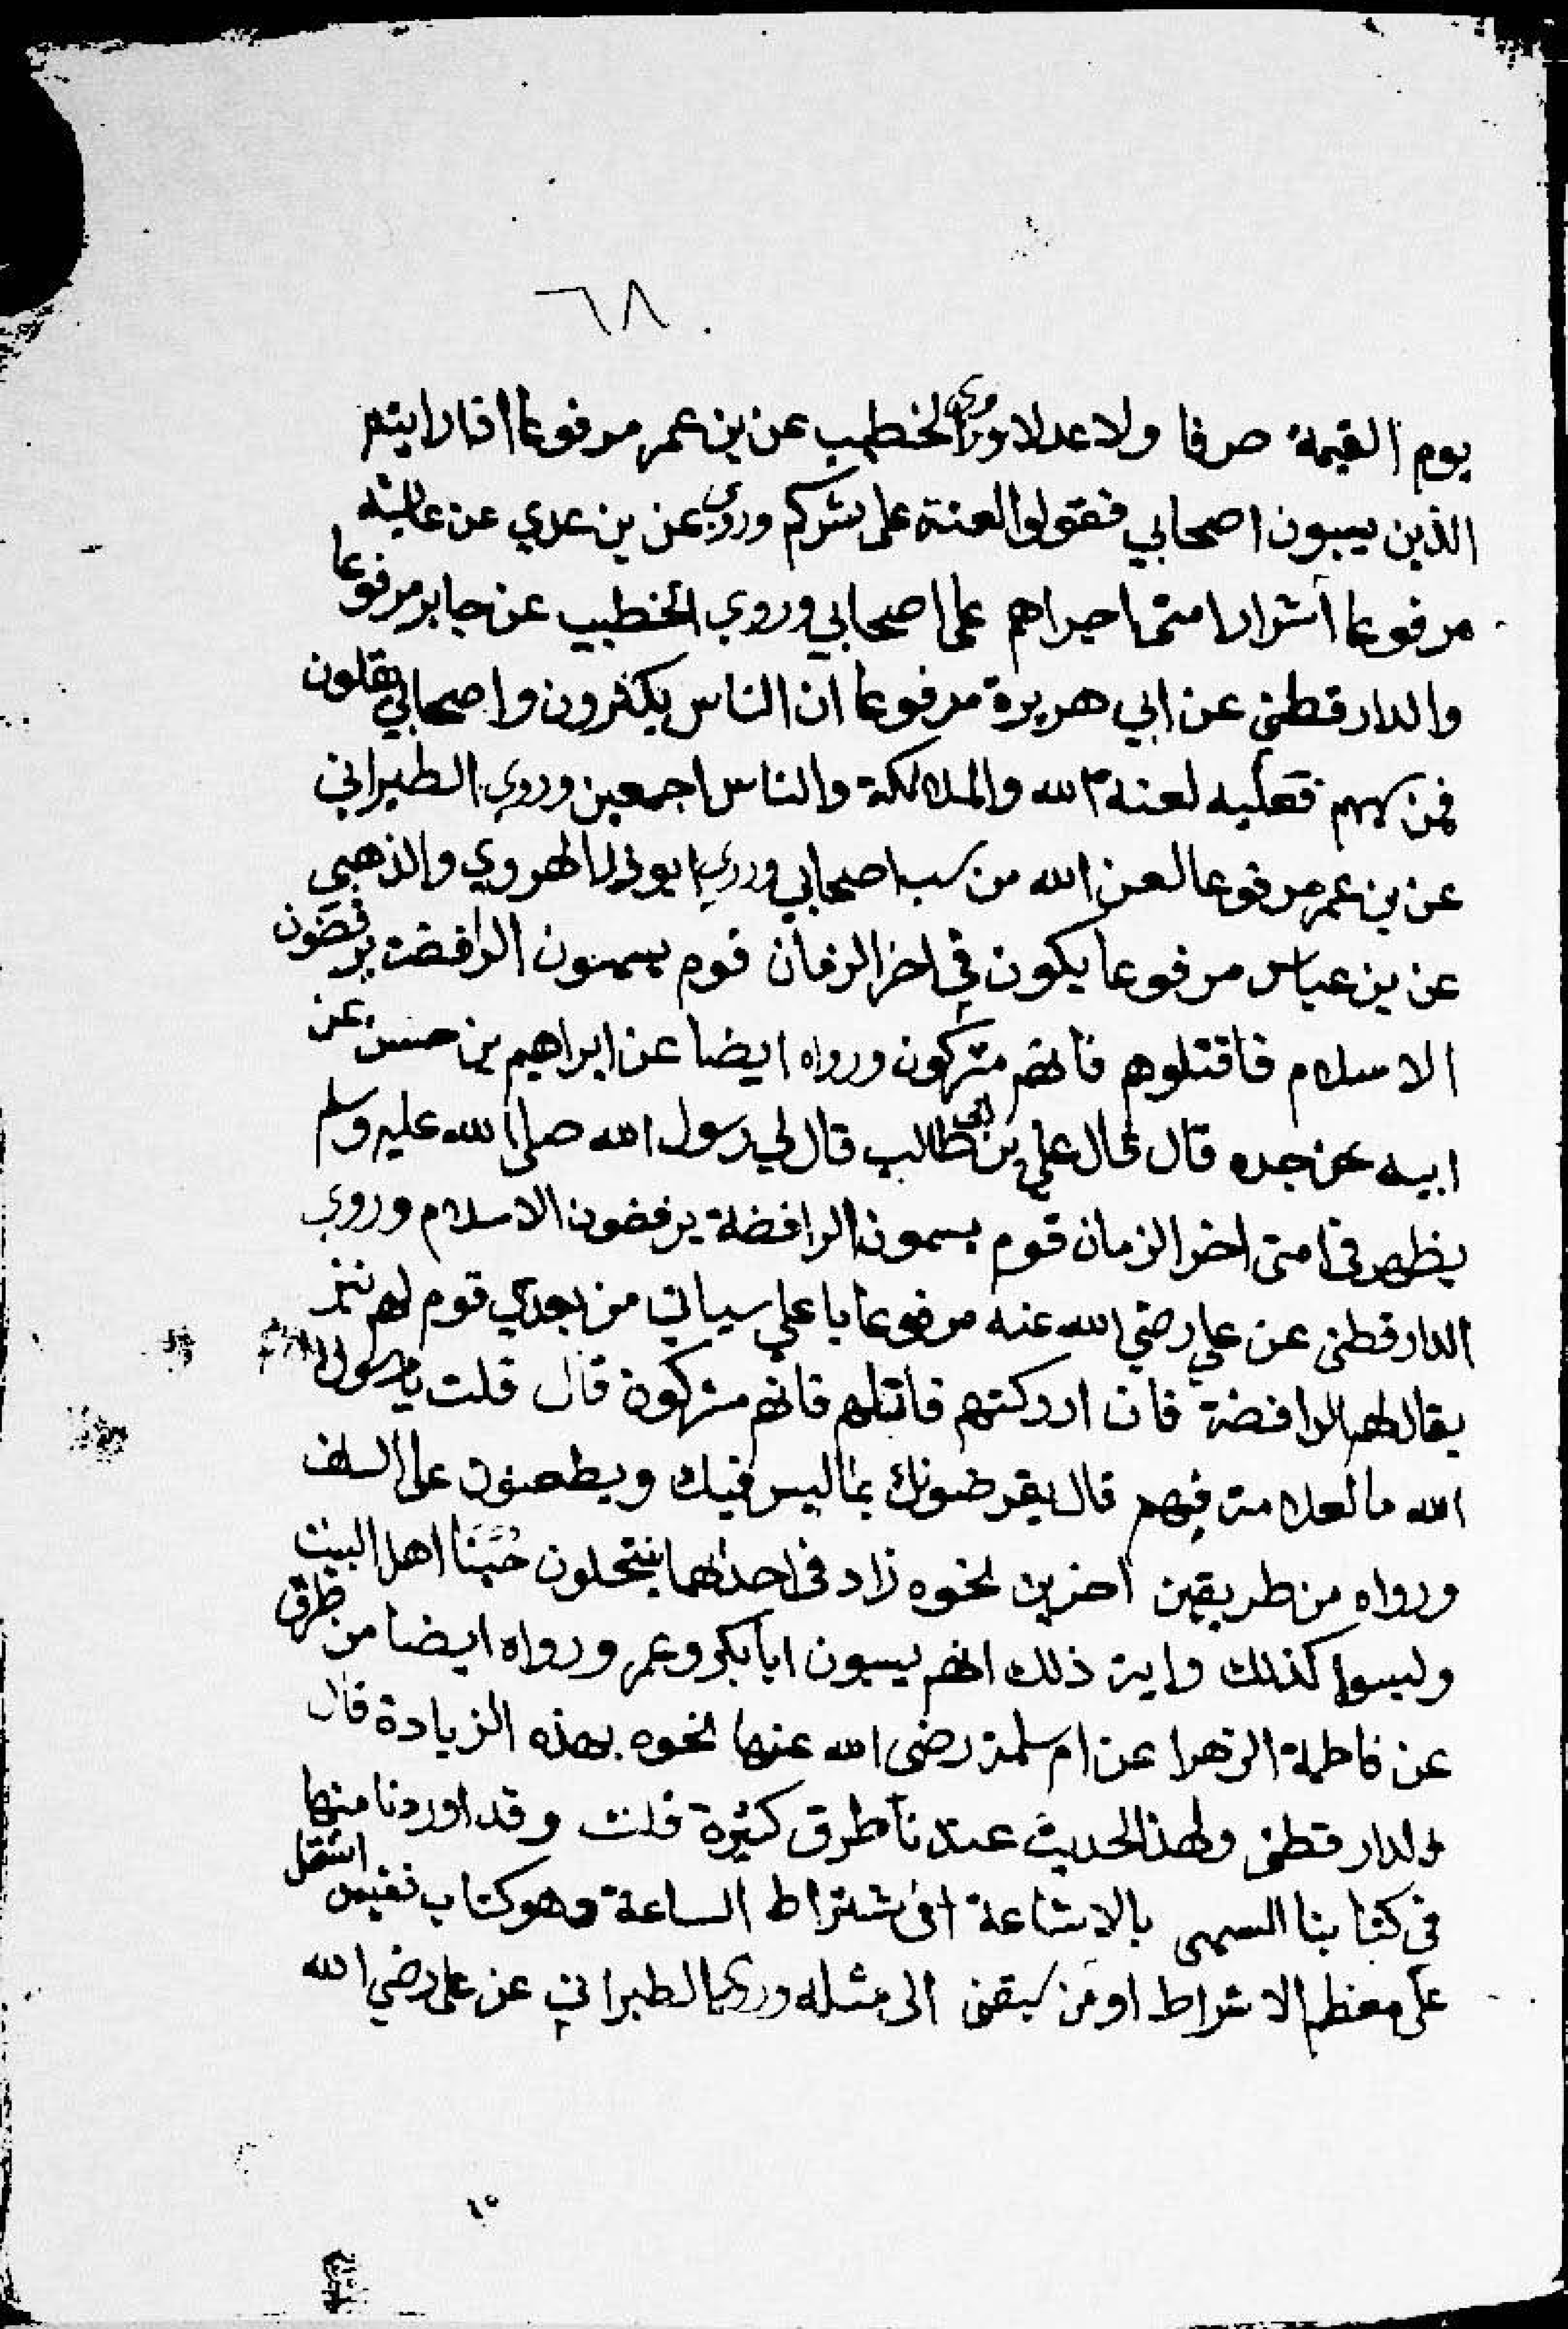 ٦٨
يوم القيمة صرفا ولا عدلا وروى الخطيب عن بن عمر مرفوعا اذا رايتم
الذين يسبون اصحابي فقولوا لعنة على شركم وروى عن بن عدي عن عايشه
مرفوعا اشرار امتى اجراهم على اصحابي وروي الخطيب عن جابر مرفوعا
والدارقطني عن ابي هريرة مرفوعا ان الناس يكثرون واصحابي يقلون
فمن سبهم فعليه لعنه الله والملائكة والناس اجمعين وروي الطبراني
عن بن عمر مرفوعا لعن الله من سب اصحابي وروي ابو ذر الهروي والذهبي
عن بن عباس مرفوعا يكون في اخر الزمان قوم يسمون الرافضة يرفضون
الاسلام فاقتلوهم فانهم مشركون ورواه ايضا عن ابراهيم بن حسن عن
ابيه عن جده قال قال علي بن ابى طالب قال لي رسول الله صلى الله عليه وسلم
يظهر في امتى اخر الزمان قوم يسمون الرافضة يرفضون الاسلام وروي
الدارقطنى عن علي رضي الله عنه مرفوعا يا علي سياتي من بعدي قوم لهم نبز
يقال لهم الرافضة فان ادركتهم فاقتلهم فانهم مشركون قال قلت يا رسول
الله ما العلامة فيهم قال يقرضونك بما ليس فيك ويطعنون على السلف
ورواه من طريقين اخرين نحوه زاد في احدهما ينتحلون حُبَّنا اهل البيت
وليسوا كذلك واية ذلك انهم يسبون ابا بكر وعمر ورواه ايضا من طرق
عن فاطمة الزهرا عن ام سلمة رضى الله عنها نحوه بهذه الزيادة قال
والدارقطنى ولهذا الحديث عندنا طرق كثيرة قلت وقد اوردنا منها
في كتابنا المسمى بالاشاعة في اشتراط الساعة وهو كتاب نفيس اشتمل
على معظم الاشراط او من سبقنى الى مثله وروى الطبراني عن على رضي الله